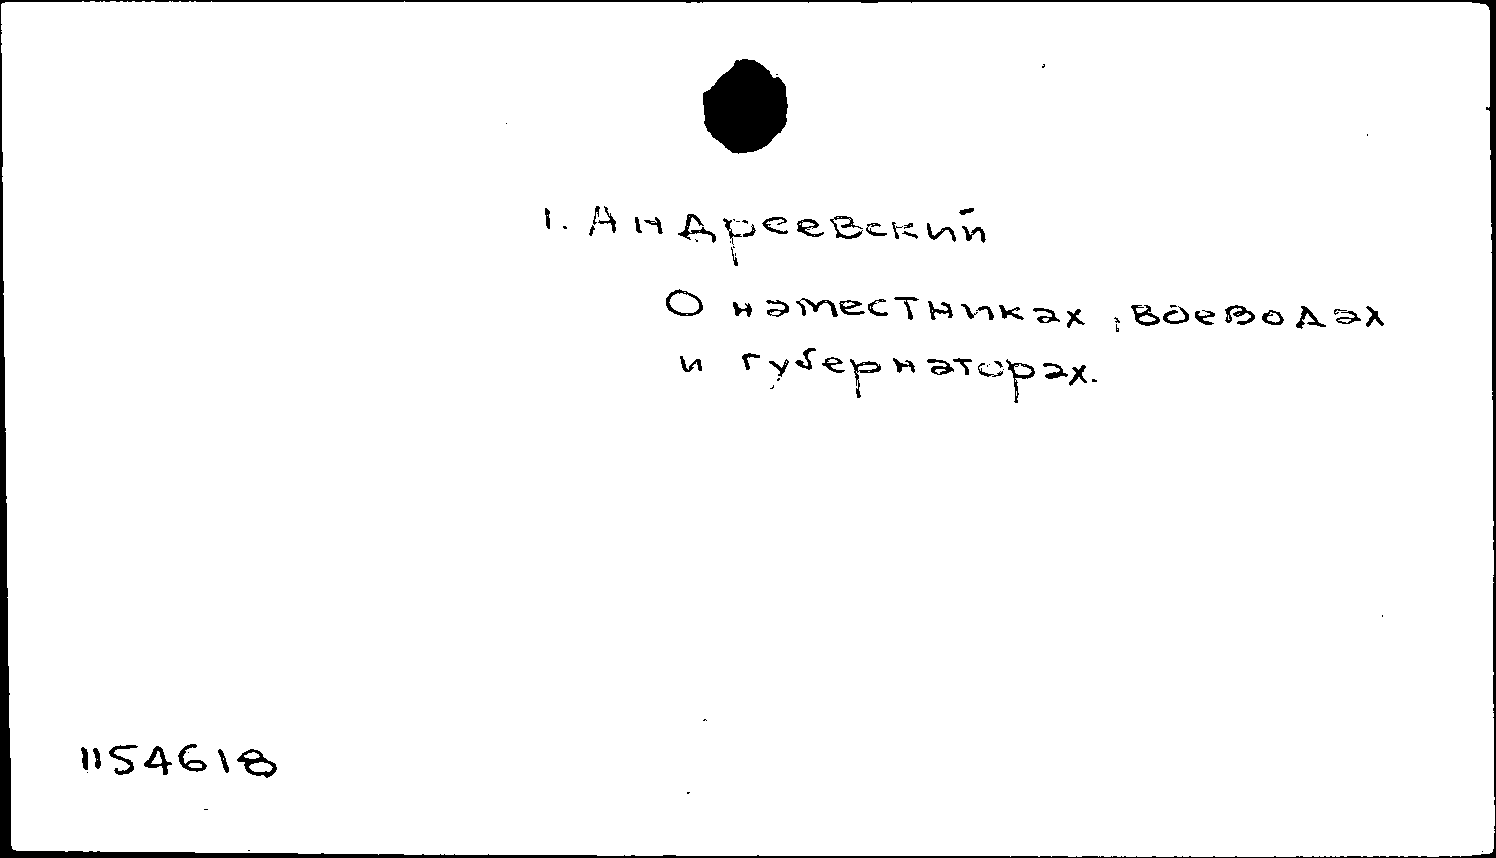 1. Андреевский
О наместниках, воеводах
и губернаторах.
1154618